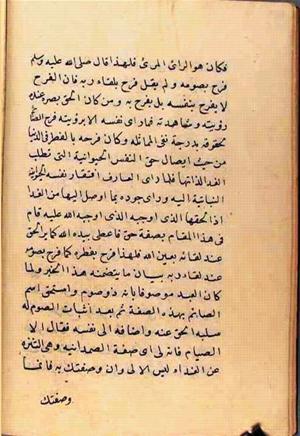 فكان هو الرائي المرئي فلهذا قال صلى الله عليه وسلم
فرح بصومه ولم يقل فرح بلقاء ربه فان الفرح
لا يفرح بنفسه بل يفرح به ومن كان الحق بصره عند
رؤيته ومشاهدته فما رأى نفسه الا برؤيته ففرح الصائم
لحقوقه بدرجة نفي المماثلة وكان فرحه بالفطر في الدنيا
من حيث ايصال حق النفس الحيوانية التي تطلب
الغذاء لذاتها فلما راى العارف افتقار نفسه الحيوانية
النباتية اليه وراى جوده بما اوصل اليها من الغذا
اذ الحقها الذى اوجبه الله عليه قام
في هذا المقام بصفة حق فاعطى بيد الله كما يرى الحق
عند لقائه بعين الله فلهذا فرح بفطره كما فرح بصومه
عند لقاء ربه بيان ما يتضمنه هذا الخبر ولما
كان العبد موصوفا بانه ذو صوم واستحق اسم
الصائم بهذه الصفة ثم بعد اثبات الصوم له
سلبه الحق عنه واضافه الى نفسه فقال الا
الصيام فانه لى اى صفة الصمدانيه وهي التنزه
عن الغذاء ليس الا لى وان وصفتك به فانما
وصفتك